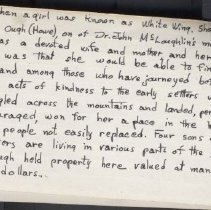 when a girl was known as White Wing. She
Ough (Howe), on of Dr. John McLaughlin's m
as a devoted, wife and mother and her
was that she would be able to fin
and among those who have journeyed bef
acts of kindness to the early settlers w
gled across the mountains and landed, penn
ouraged, won for her a place in the h
people not easily replaced. Four sons
ors are living in various parts of the
ugh held property here valued at man
dollars...